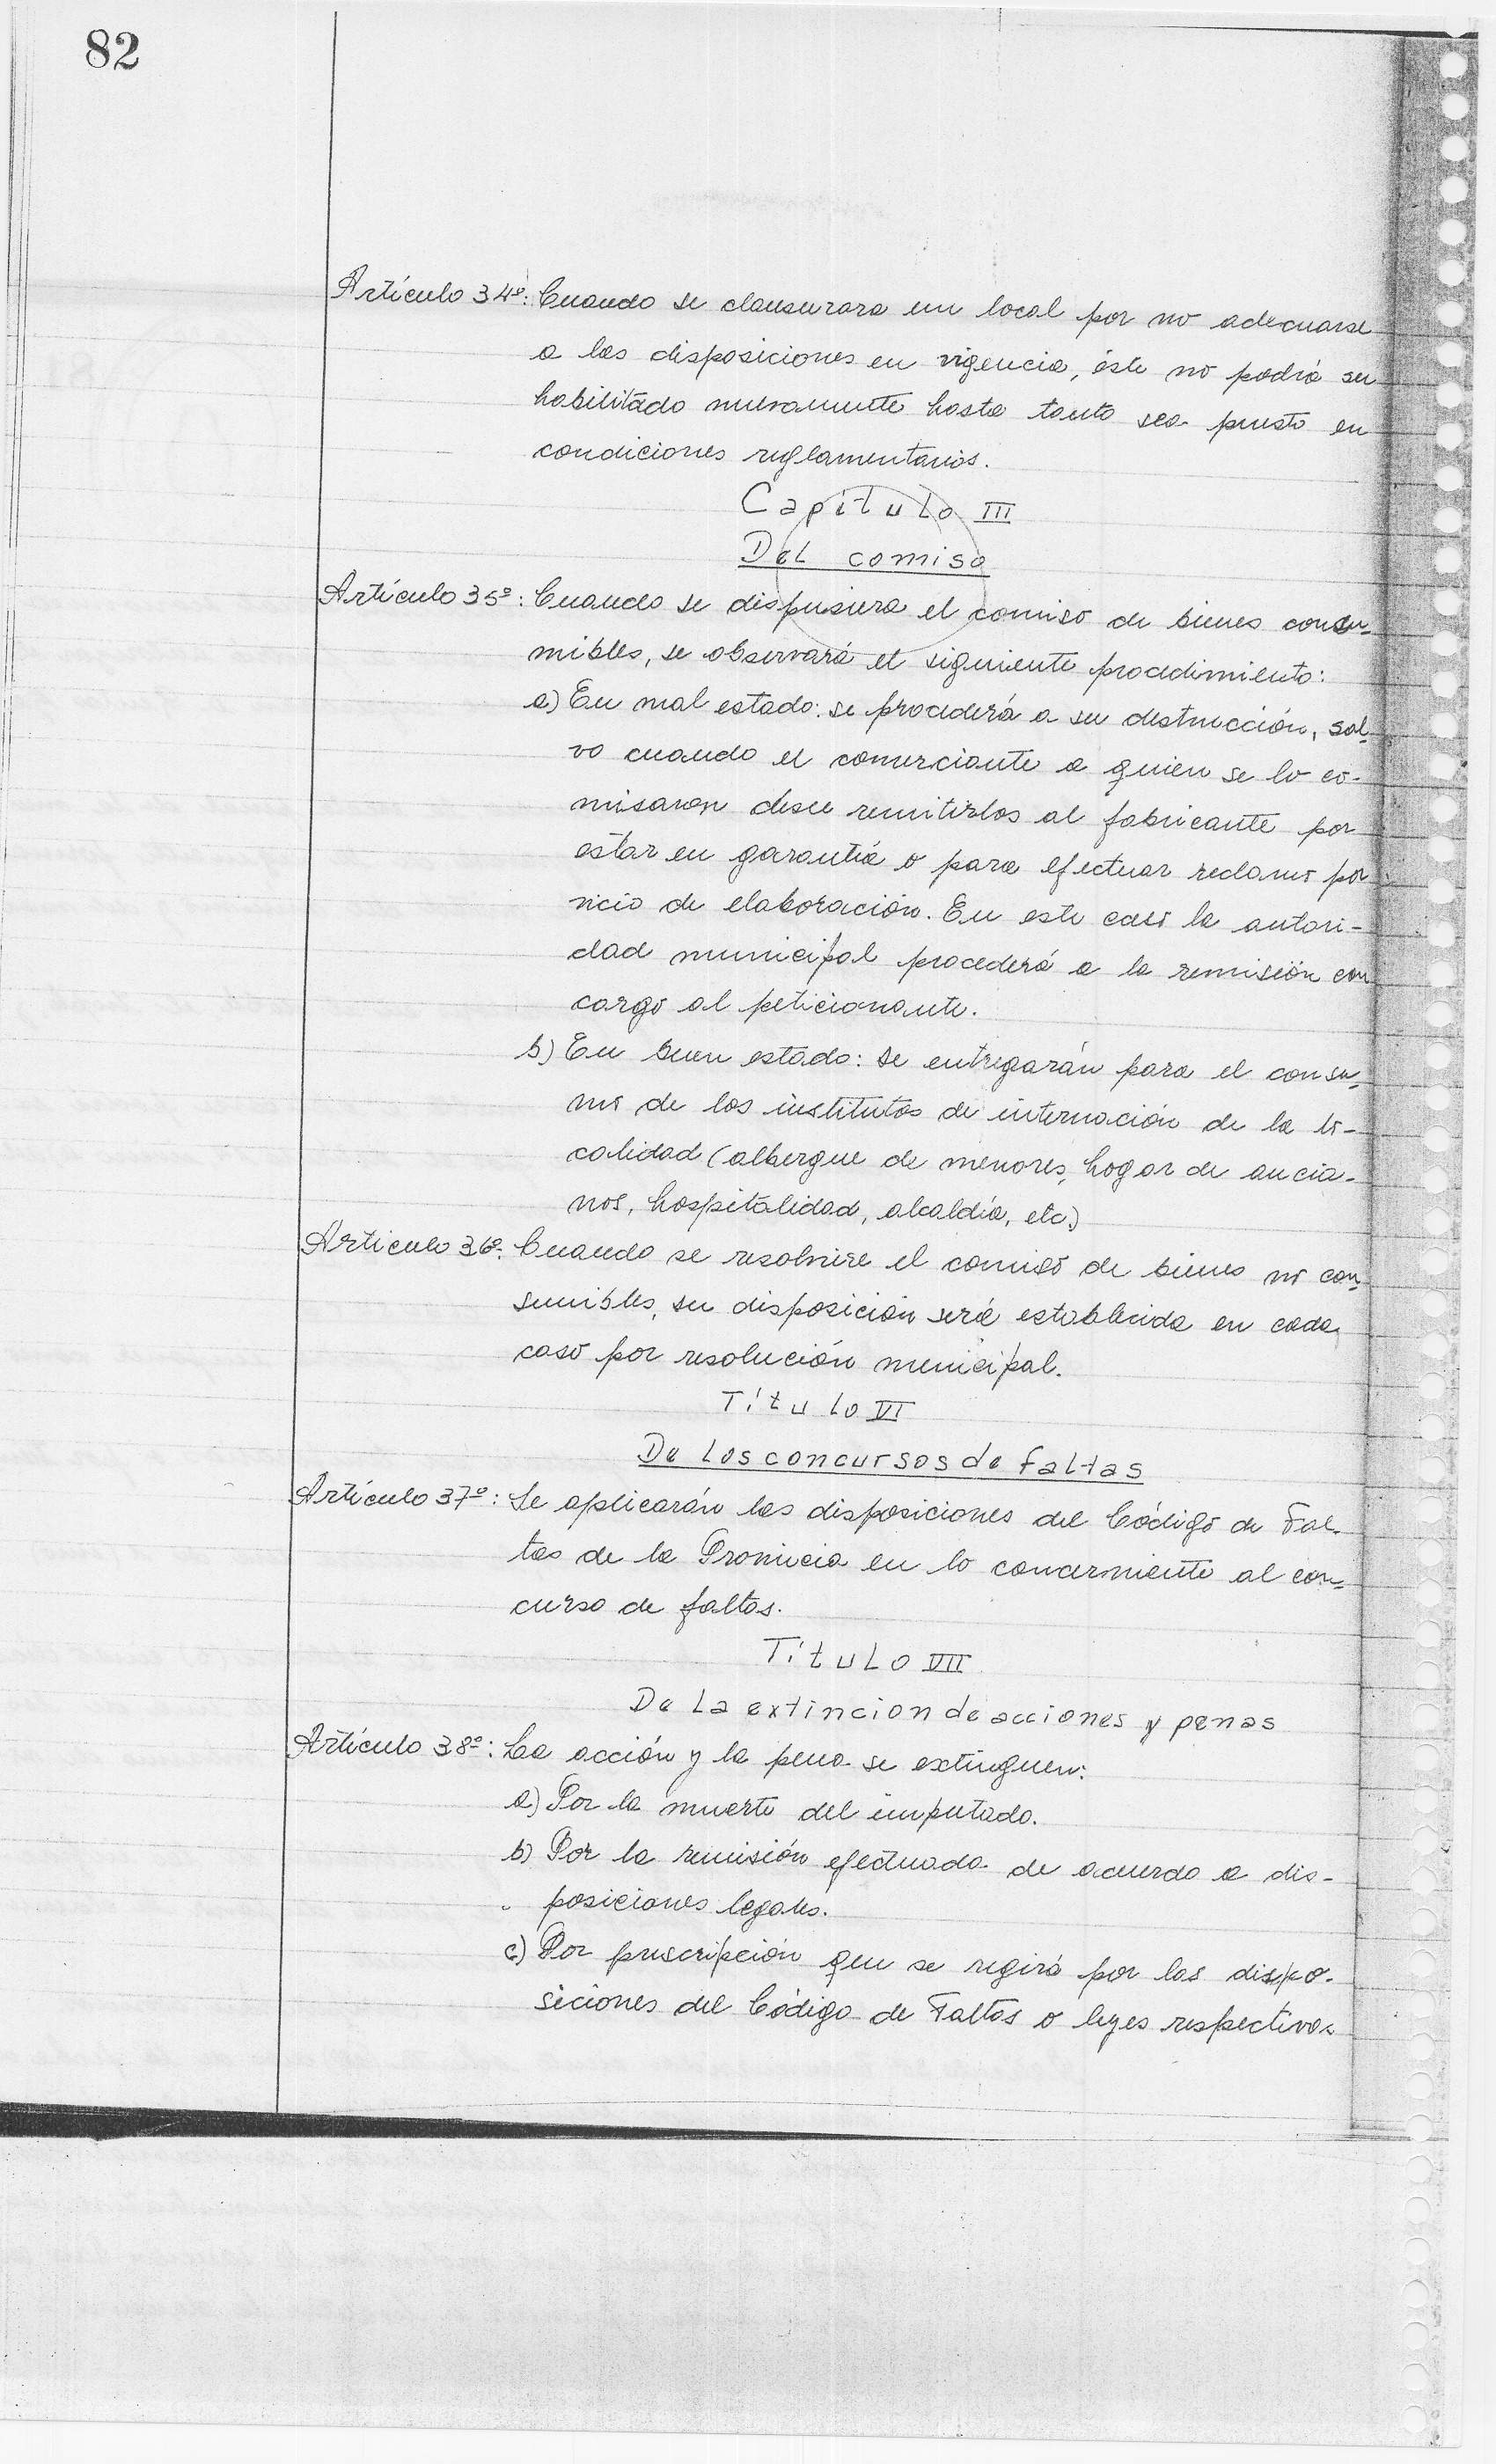 82
Artículo 34º: Cuando se clausurara un local por no adecuarse
a las disposiciones en vigencia, éste no podrá ser
habilitado nuevamente hasta tanto sea puesto en
condiciones reglamentarias.
Capítulo III
Del comiso
Artículo 35º: Cuando se dispusiera el comiso de bienes consu-
mibles, se observará el siguiente procedimiento:
a) En mal estado: se procederá a su destrucción, sal-
vo cuando el comerciante a quien se lo co-
misaron desee remitirlos al fabricante por
estar en garantía o para efectuar reclamo por
vicio de elaboración. En este caso la autori-
dad municipal procederá a la remisión con
cargo al peticionante.
b) En buen estado: se entregarán para el consu-
mo de los institutos de internación de la lo-
calidad (albergue de menores, hogar de ancia-
nos, hospitalidad, alcaldía, etc.)
Artículo 36º: Cuando se resolviere el comiso de bienes no con-
sumibles, su disposición será establecida en cada
caso por resolución municipal.
Título VI
De los concursos de faltas
Artículo 37º: Se aplicarán las disposiciones del Código de Fal-
tas de la Provincia en lo concerniente al con-
curso de faltas.
Título VII
De la extincion de acciones y penas
Artículo 38º: La acción y la pena se extinguen:
a) Por la muerte del imputado.
b) Por la remisión efectuada de acuerdo a dis-
posiciones legales.
c) Por prescripción que se regirá por las dispo-
siciones del Código de Faltas o leyes respectivas